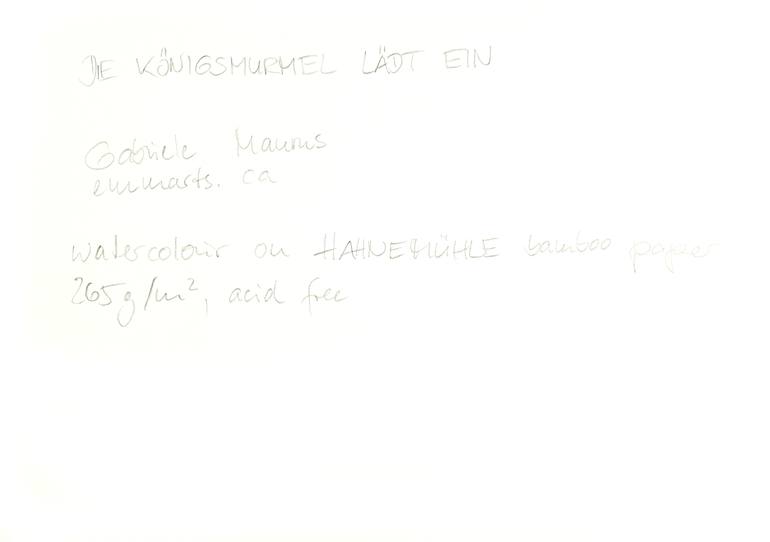 DIE KÖNIGSMURMEL LÄDT EIN
Gabriele Maurus
emmarts.ca
watercolour on HAHNEMÜHLE bamboo paper
265g/m², acid free